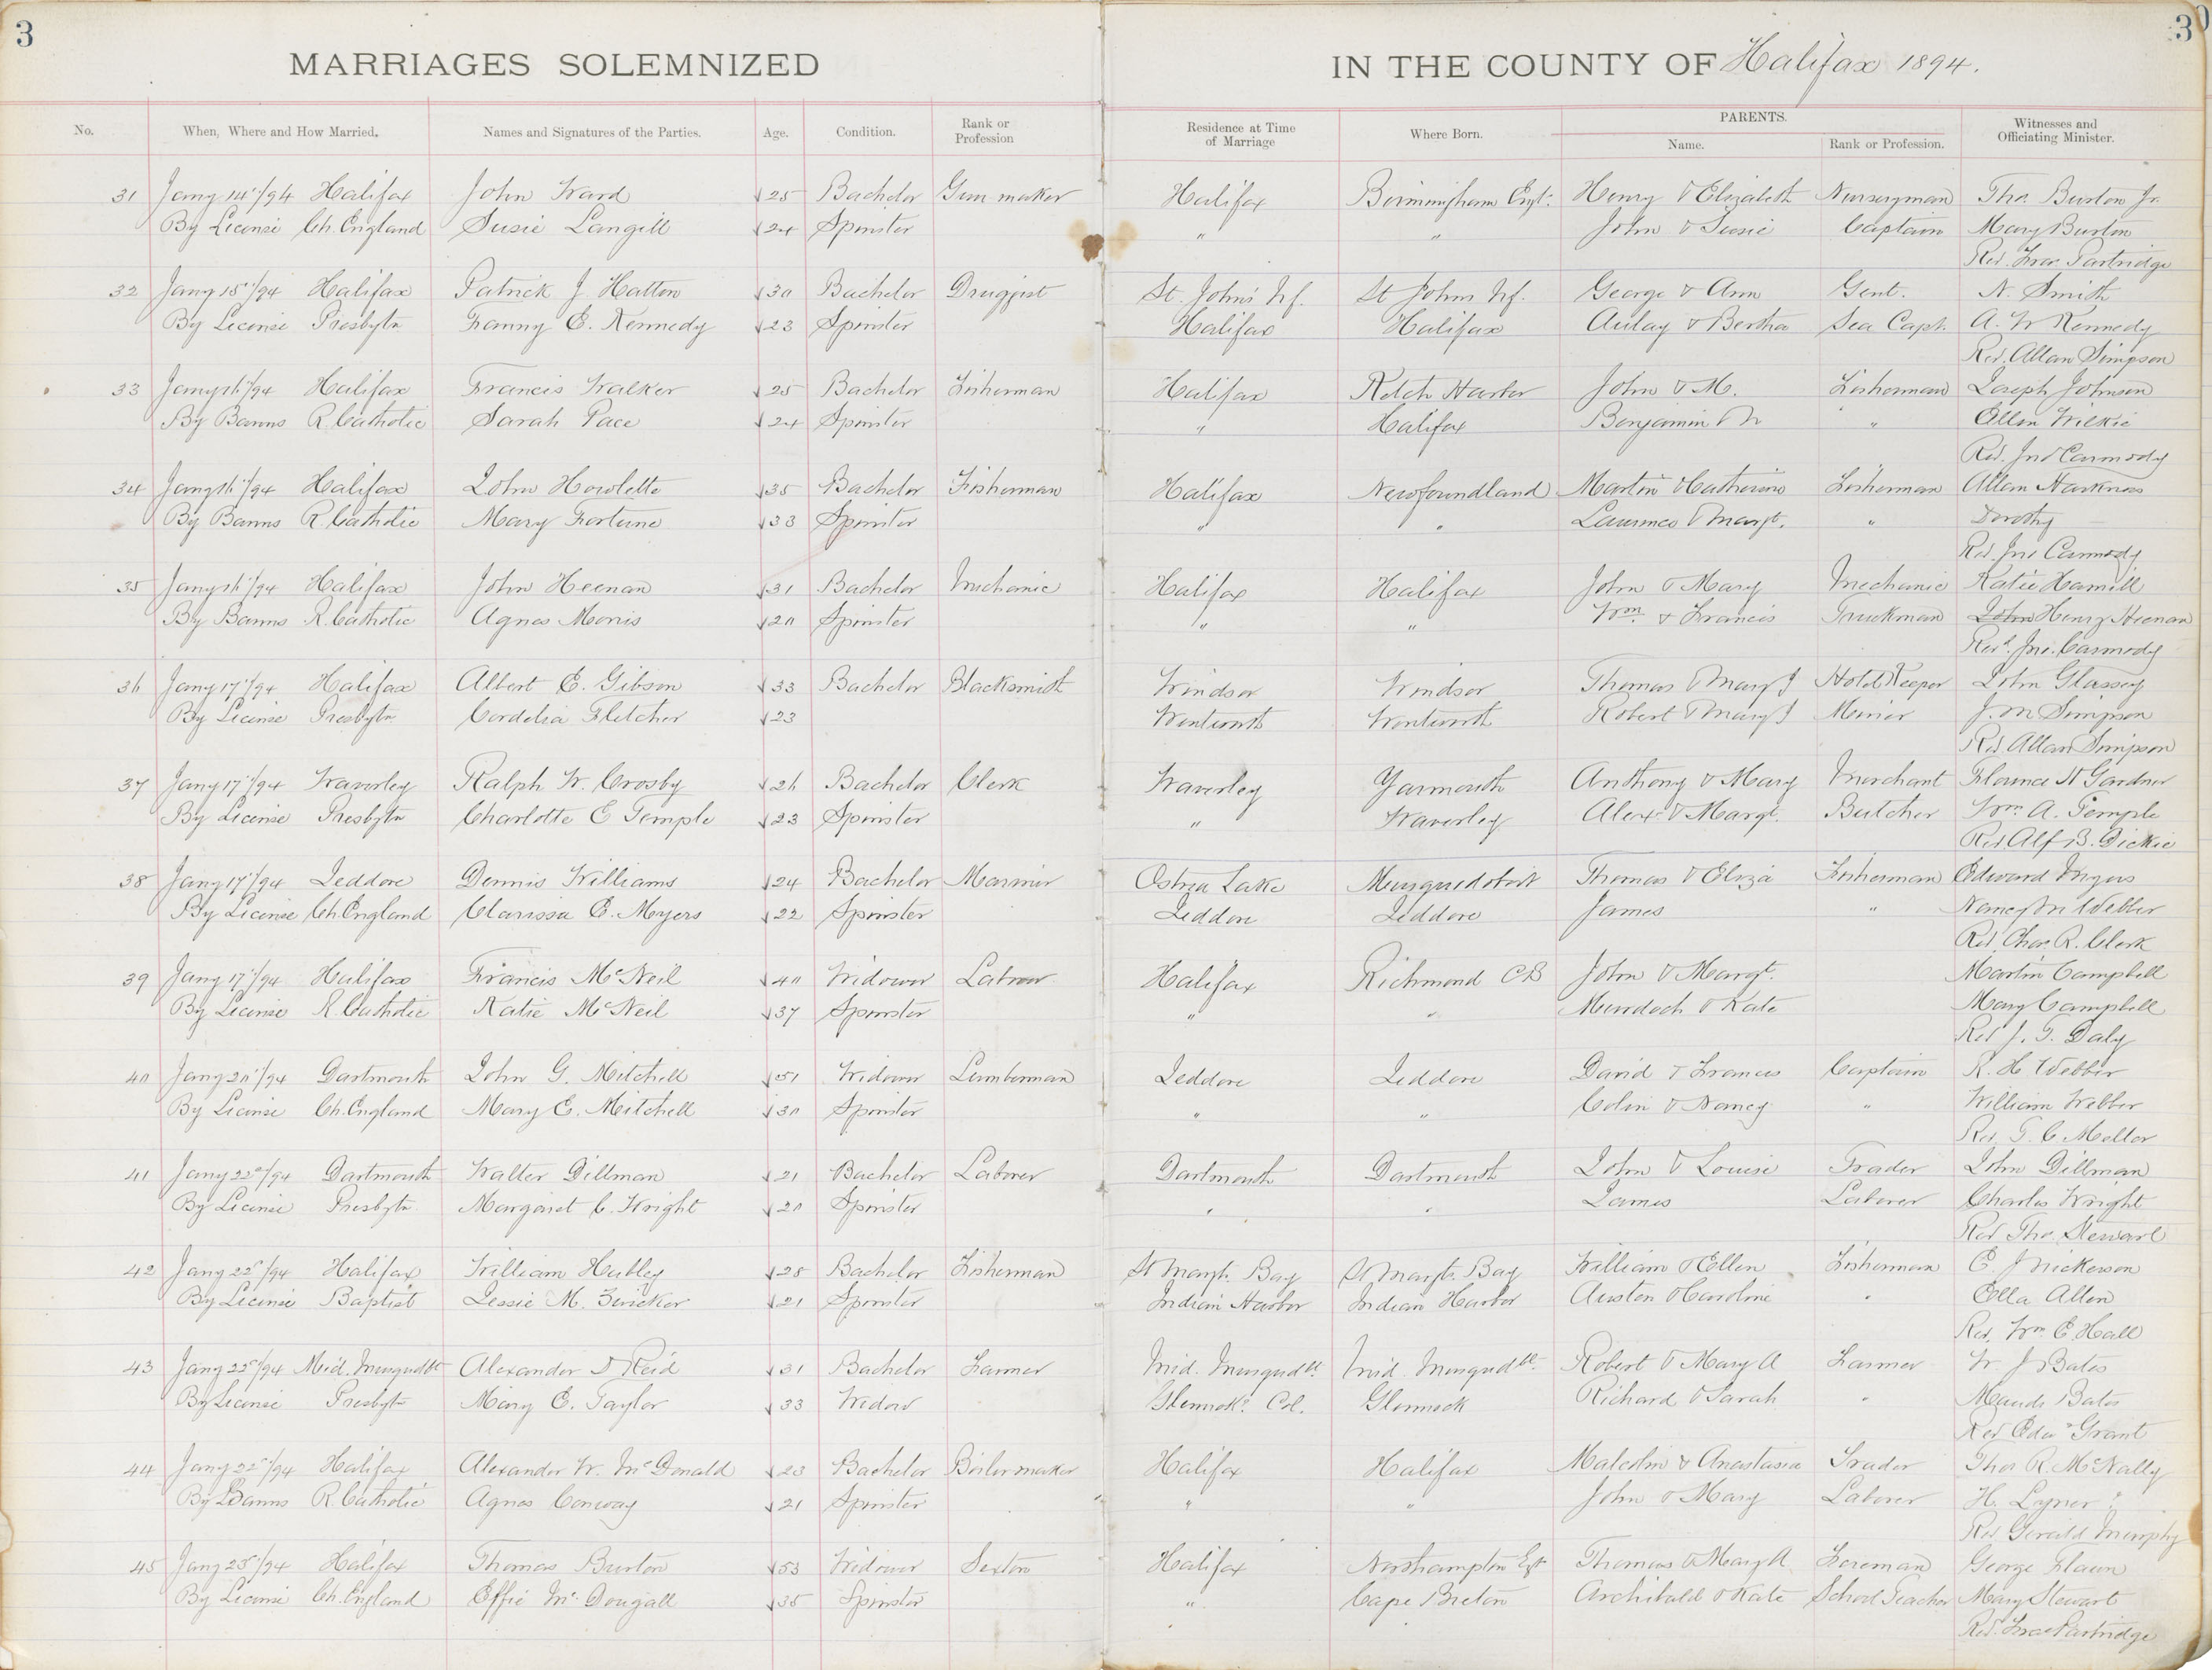 3
30
MARRIAGES SOLEMNIZED IN THE COUNTY OF Halifax 1894.
No. When, Where and How Married. Names and Signatures of the Parties. Age. Condition. Rank or Profession Residence at Time of Marriage Where Born. PARENTS. Name. Rank or Profession. Witnesses and Officiating Minister.
31 Jany 14"/94 Halifax John Ward 25 Bachelor Gun maker Halifax Birmingham Engt. Henry & Elizabeth Nurseryman Thos. Burton Jr.
By License Ch. England Susie Langill 24 Spinster " " John & Susie Captain Mary Burton
Rev. Frac Partridge
32 Jany 15"/94 Halifax Patrick J. Hatton 30 Bachelor Druggist St. John's Nf. St Johns Nf. George & Ann Gent. N. Smith
By License Presbytn Fanny E. Kennedy 23 Spinster Halifax Halifax Aulay & Bertha Sea Capt. A. W Kennedy
Rev. Allan Simpson
33 Jany 16"/94 Halifax Francis Walker 25 Bachelor Fisherman Halifax Ketch Harbor John & M. Fisherman Joseph Johnson
By Banns R. Catholic Sarah Pace 24 Spinster " Halifax Benjamin & " Ellen Wilkie
Rev. Jno Carmody
34 Jany 16"/94 Halifax John Howlette 35 Bachelor Fisherman Halifax Newfoundland Martin & Catherine Fisherman Allan Harkness
By Banns R. Catholic Mary Fortune 33 Spinster " " Laurence & Margt. " Dorothy —
Rev. Jno Carmody
35 Jany 16"/94 Halifax John Heenan 31 Bachelor Mechanic Halifax Halifax John & Mary Mechanic Katie Hamill
By Banns R. Catholic Agnes Morris 20 Spinster " " Wm. & Francis Truckman John Henry Heenan
Revd. Jno. Carmody
36 Jany 17"/94 Halifax Albert E. Gibson 33 Bachelor Blacksmith Windsor Windsor Thomas & Mary J Hotel Keeper John Glassey
By License Presbytn Cordelia Fletcher 23 Wentworth Wentworth Robert & Mary J Miner J. M Simpson
Rev. Allan Simpson
37 Jany 17"/94 Waverley Ralph W. Crosby 26 Bachelor Clerk Waverley Yarmouth Anthony & Mary Merchant Florence H Gardner
By License Presbytn Charlotte E Temple 23 Spinster " Waverley Alexr. & Margt. Butcher Wm. A. Temple
Rev. Alf B. Dickie
38 Jany 17"/94 Jeddore Dennis Williams 24 Bachelor Mariner Ostrea Lake Musquodoboit Thomas & Eliza Fisherman Edward Myers
By License Ch. England Clarissa E. Myers 22 Spinster Jeddore Jeddore James " Nancy M Webber
Rev. Chas. R. Clerk
39 Jany 17"/94 Halifax Francis McNeil 40 Widower Labourer Halifax Richmond CB John & Margt. Martin Campbell
By License R. Catholic Katie McNeil 37 Spinster " " Murdoch & Kate Mary Campbell
Rev J. T. Daly
40 Jany 20"/94 Dartmouth John G. Mitchell 51 Widower Lumberman Jeddore Jeddore David & Frances Captain R. H Webber
By License Ch. England Mary E. Mitchell 30 Spinster " " Colin & Nancy " William Webber
Rev. T. C Mellor
41 Jany 22"/94 Dartmouth Walter Dillman 21 Bachelor Laborer Dartmouth Dartmouth John & Louise Trader John Dillman
By License Presbytn Margaret C. Wright 20 Spinster " " James Laborer Charles Wright
Rev Thos. Stewart
42 Jany 22"/94 Halifax William Hubley 28 Bachelor Fisherman St Margts. Bay St Margts. Bay William & Ellen Fisherman E. J Nickerson
By License Baptist Jessie M. Zwicker 21 Spinster Indian Harbor Indian Harbor Auston & Caroline " Ella Allen
Rev. Wm E Hall
43 Jany 22"/94 Mid. Musqudbt Alexander D Reid 31 Bachelor Farmer Mid. Musqudbt. Mid. Musqudbt. Robert & Mary A Farmer W. J Bates
By License Presbytn Mary E. Taylor 33 Widow Glennek. Col. Glenneck Richard & Sarah " Maude Bates
Rev Edw Grant
44 Jany 22"/94 Halifax Alexander W. McDonald 23 Bachelor Boilermaker Halifax Halifax Malcolm & Anastasia Trader Thos R. McNally
By Banns R. Catholic Agnes Conway 21 Spinster " " John & Mary Laborer H. Lyner ?
Rev Gerald Murphy
45 Jany 23"/94 Halifax Thomas Burton 53 Widower Sexton Halifax Northampton Egt Thomas & Mary A Foreman George Flawn
By License Ch. England Effie McDougall 35 Spinster " Cape Breton Archibald & Kate School Teacher Mary Stewart
Rev. Frac Partridge